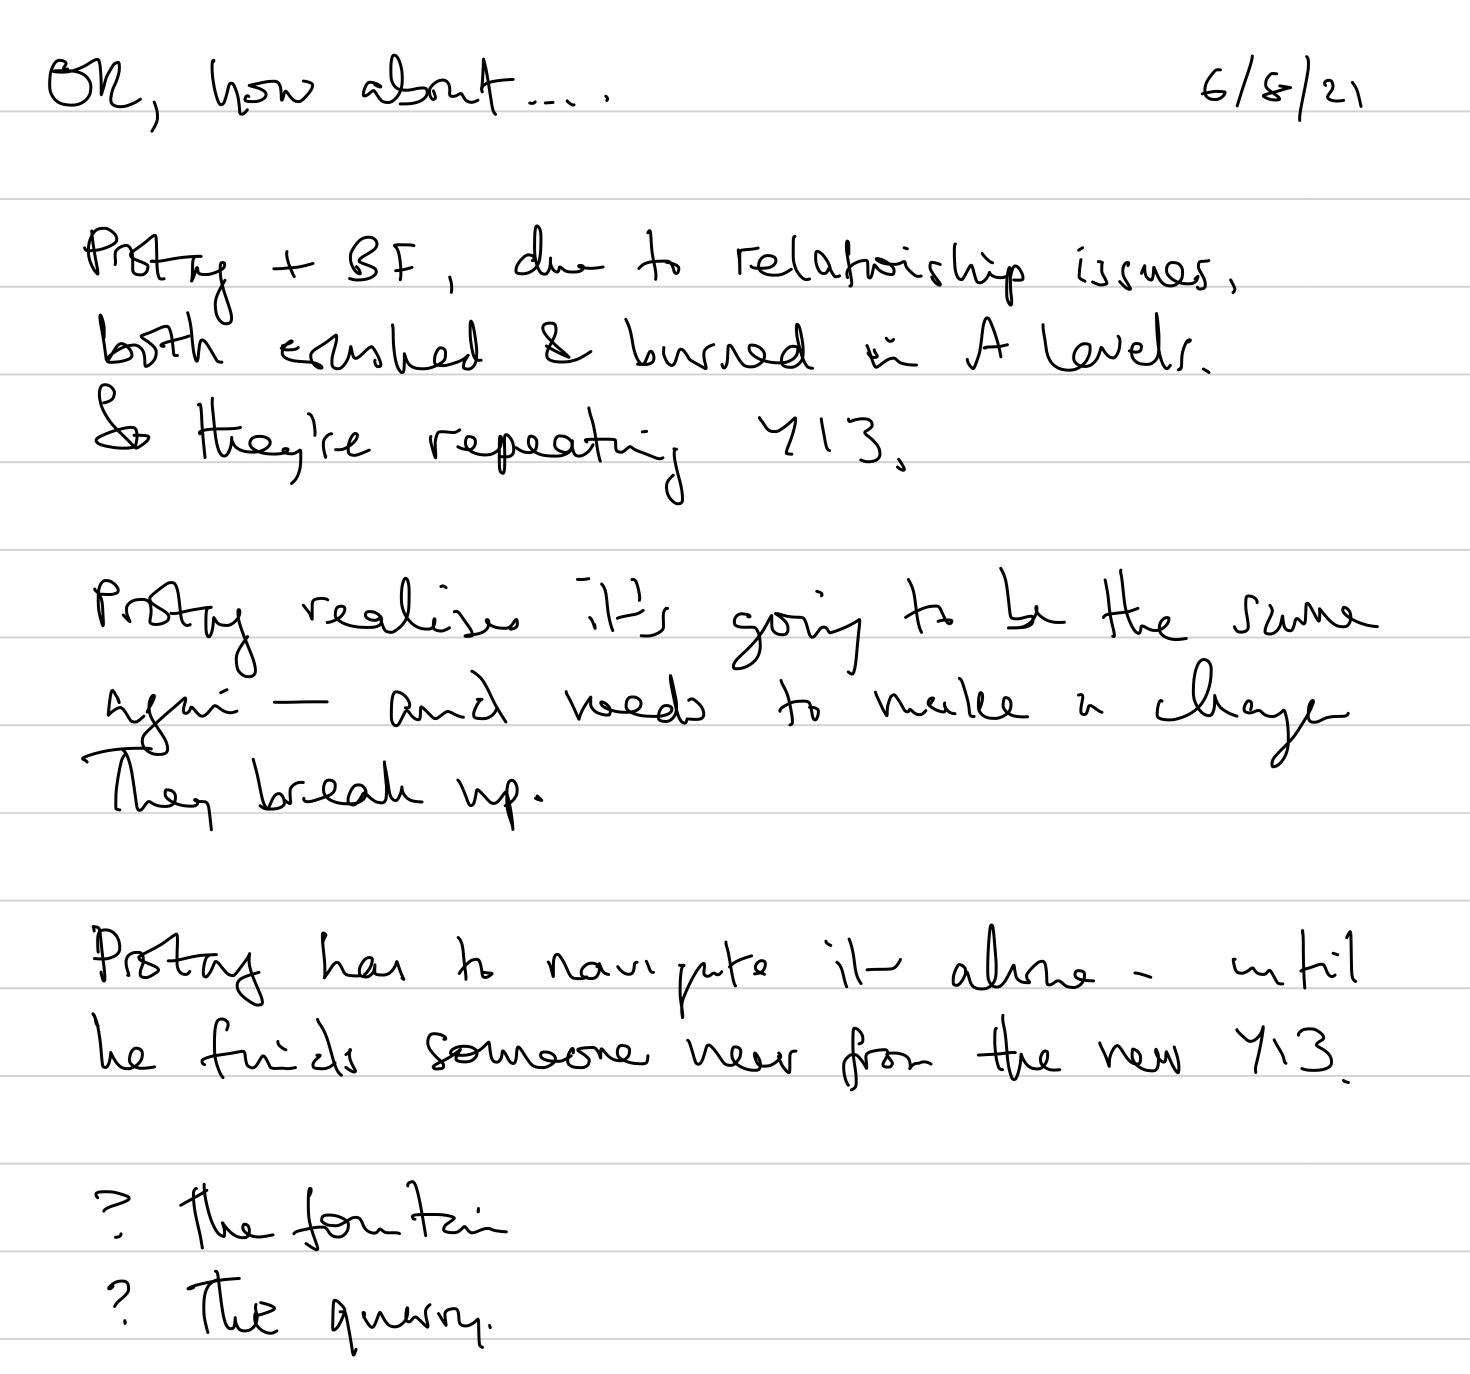 OK, how about.... 6/8/21
Protag + BF, due to relationship issues,
both crashed & burned in A Levels.
So they're repeating Y13.
Protag realises it's going to be the same
again — and needs to make a change
They break up.
Protag has to navigate it alone - until
he finds someone new from the new Y13.
? The fountain
? The quarry.